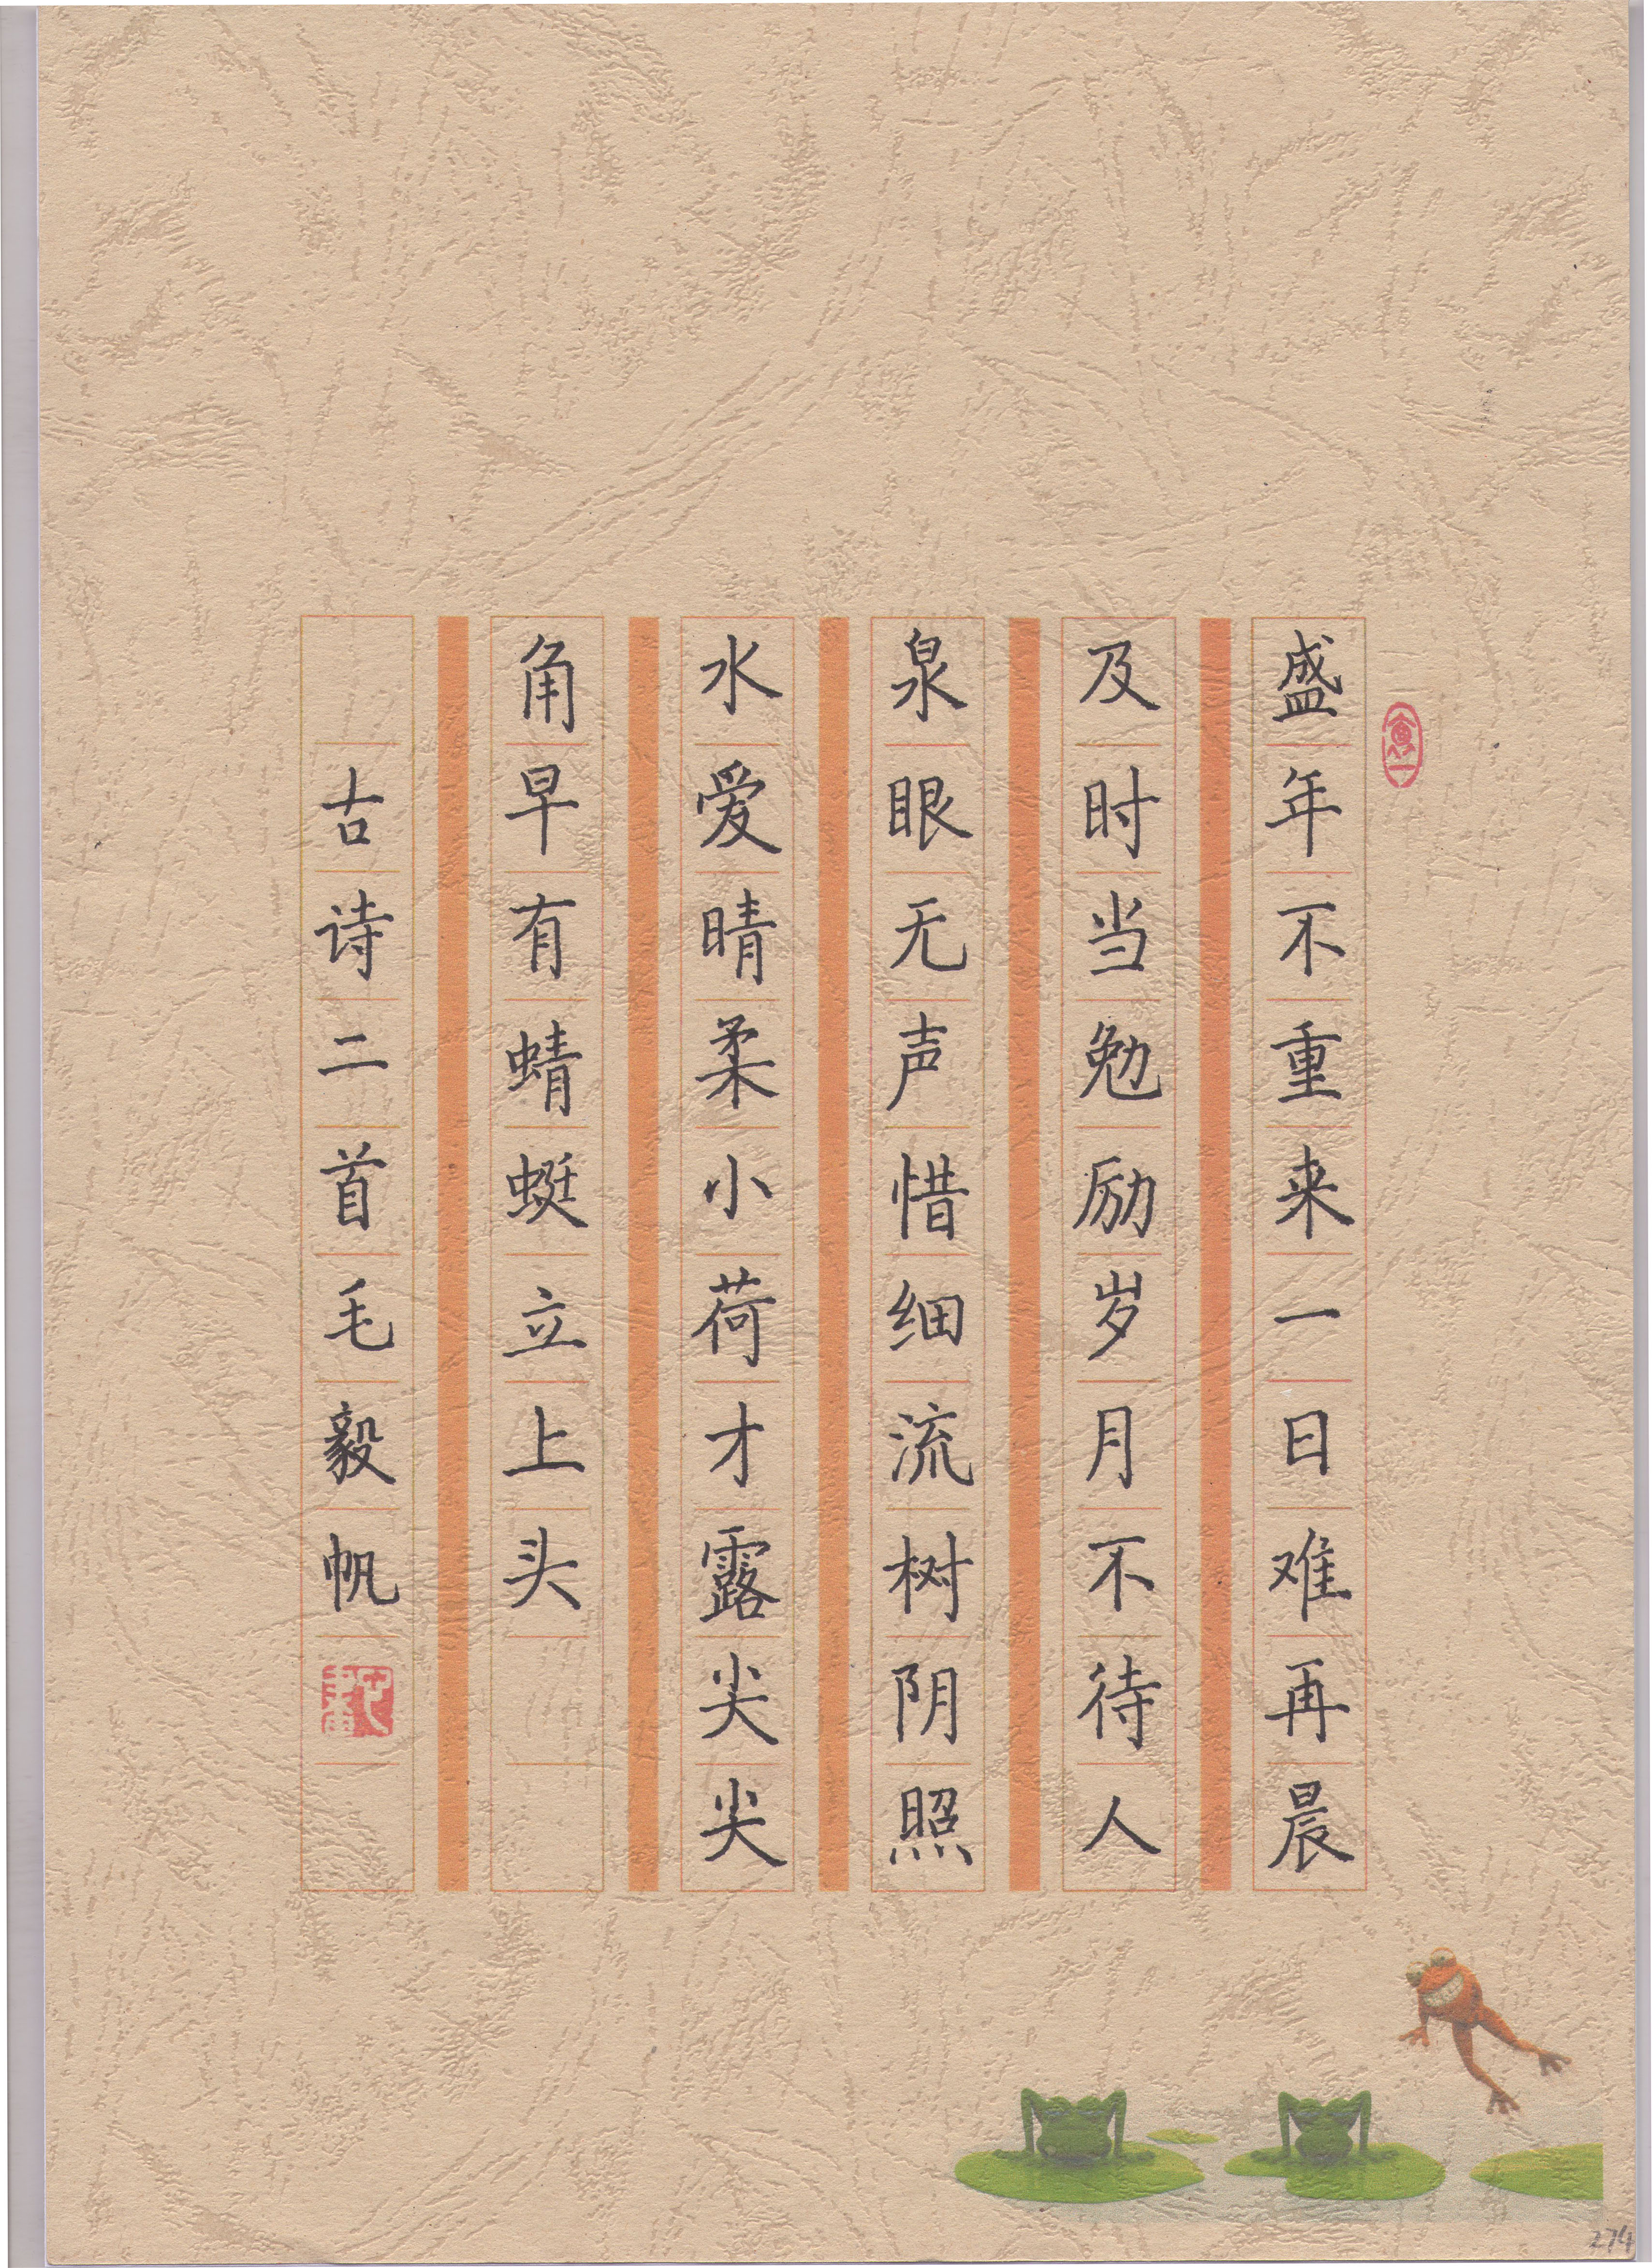 盛年不重来一日难再晨
及时当勉励岁月不待人
泉眼无声惜细流树阴照
水爱晴柔小荷才露尖尖
角早有蜻蜓立上头
古诗二首毛毅帆
274